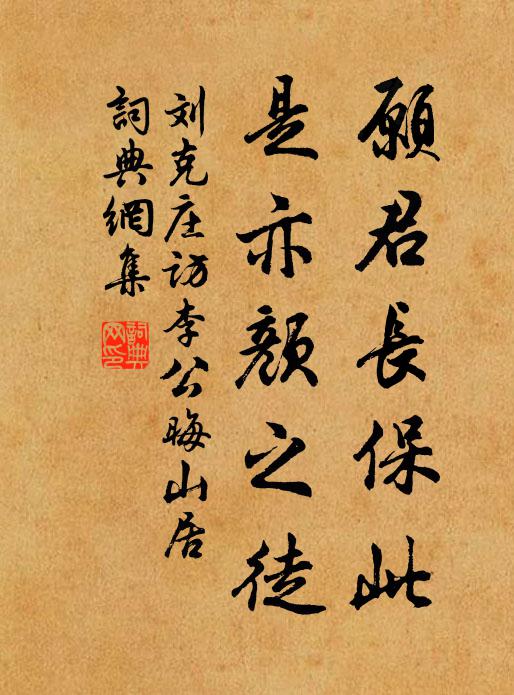 願君長保此
是亦顏之徒
刘克庄访李公晦山居
詞典網集
詞典网印